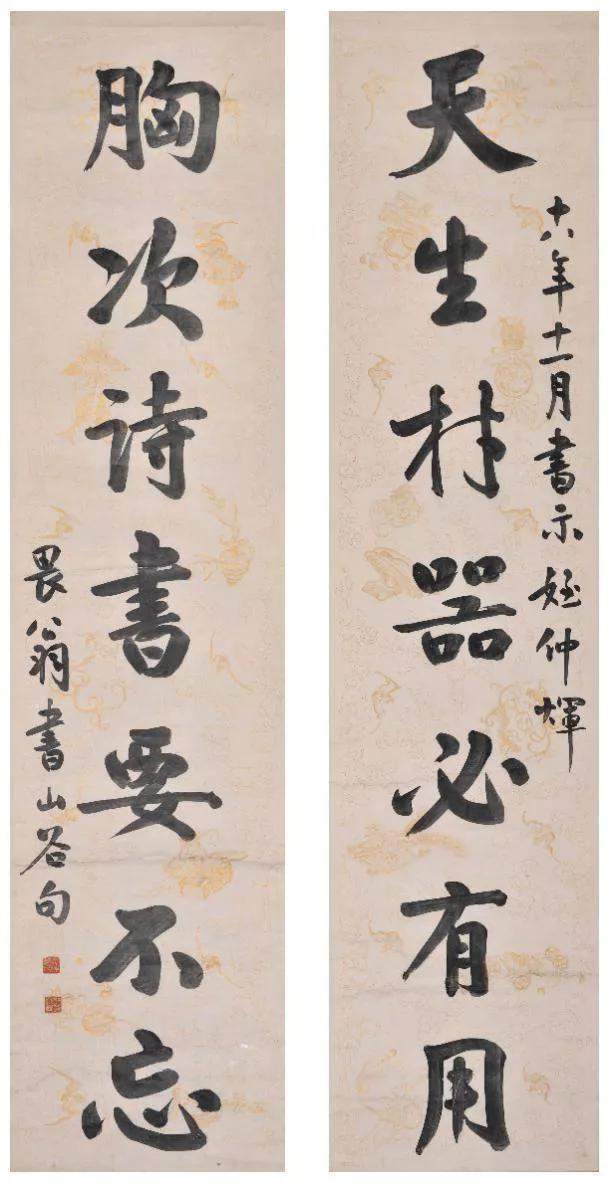 十八年十一月書示姪仲煇
天生材器必有用
胸次诗書要不忘
畏翁書山谷句